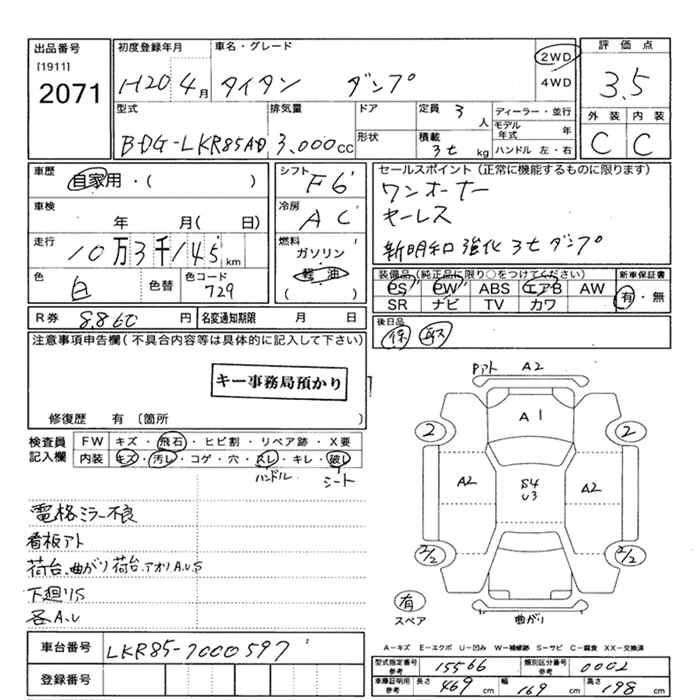 出品番号
[1911]
2071
初度登録年月
H20 4月
車名・グレード
タイタン ダンプ
2WD
4WD
評価点
3.5
外装 内装
C C
型式
BDG-LKR85AD
排気量
3,000cc
ドア
形状
定員 3人
積載 3t kg
ディーラー・並行
モデル年式 年
ハンドル 左・右
車歴
自家用・( )
車検
年 月( 日)
走行
10万3千145km
色
白
色替
色コード
729
シフト
F6
冷房
AC
燃料
ガソリン
軽油
( )
セールスポイント(正常に機能するものに限ります)
ワンオーナー
キーレス
新明和強化3tダンプ
装備品(純正品に限り○をつけてください)
PS PW ABS エアB AW
SR ナビ TV カワ
新車保証書
有・無
R券 8.860円
名変通知期限 月 日
後日品
保 取
注意事項申告欄(不具合内容等は具体的に記入して下さい)
キー事務局預かり
修復歴 有〔箇所 〕
検査員
記入欄
FW キズ・飛石・ヒビ割・リペア跡・X要
内装 キズ・汚レ・コゲ・穴・スレ・キレ・破レ
ハンドル シート
電格ミラー不良
看板アト
荷台、曲がり 荷台、アオリA.U.S
下廻りS
各A.U
車台番号 LKR85-7000597
登録番号
Pアト A2
A1
2 2
A2 84 A2
U3
2/2 2/2
有
スペア
曲がり
A−キズ E−エクボ U−凹み W−補修跡 S−サビ C−腐食 XX−交換済
型式指定番号 参考 15566
類別区分番号 参考 0002
車庫証明用 参考 長さ 469cm 幅 169cm 高さ 198cm